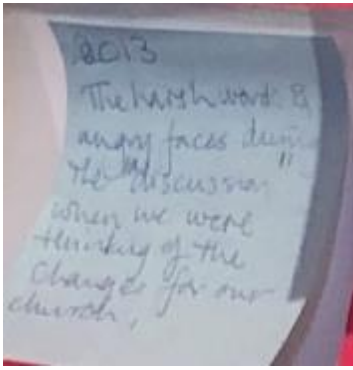 2013
The harsh words &
angry faces during
the "discussion"
when we were
thinking of the
changes for our
church,